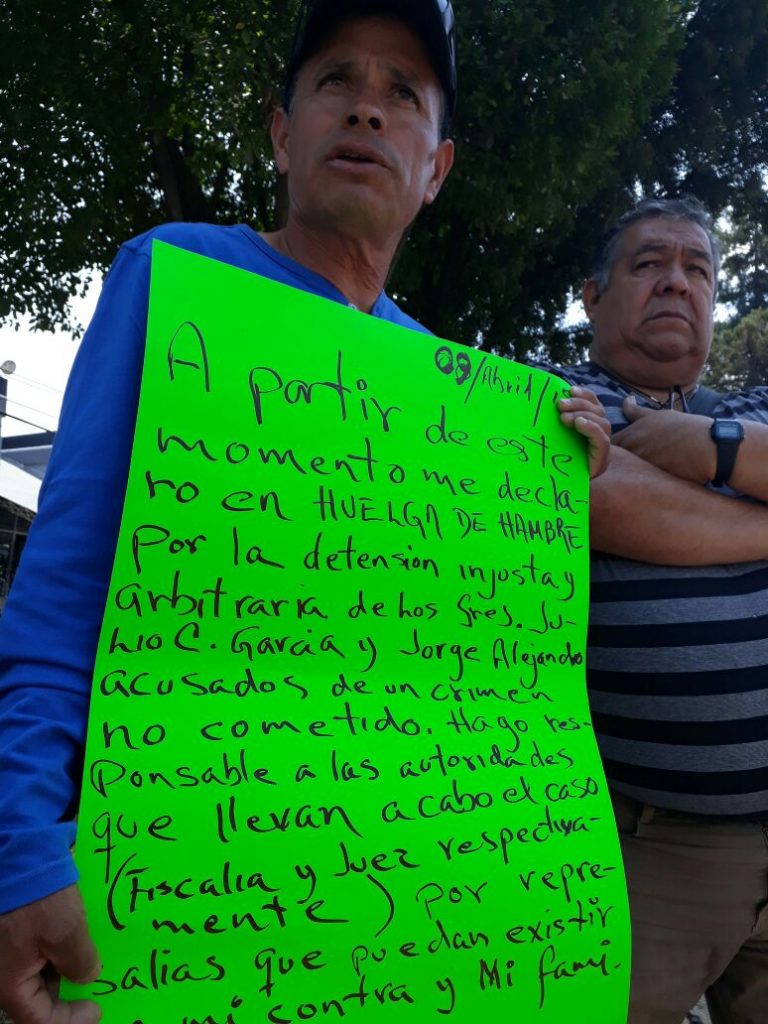 09/Abril/1
A partir de este
momento me decla-
ro en HUELGA DE HAMBRE
por la detension injusta y
arbitraria de los Sres. Ju-
lio C. Garcia y Jorge Alejandro
acusados de un crimen
no cometido. Hago res-
ponsable a las autoridades
que llevan a cabo el caso
(Fiscalia y Juez respectiva-
mente) por repre-
salias que puedan existir
mi contra y Mi fami.